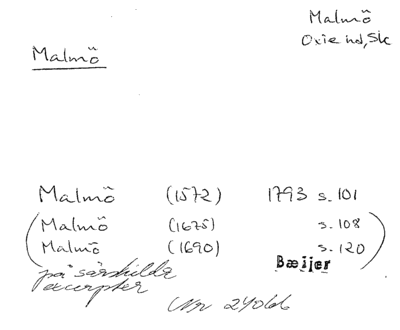 Malmö
Oxie hd, Sk
Malmö
Malmö (1572) 1793 s. 101
(Malmö (1675) s. 108
Malmö (1690) s. 120)
Bæijer
på särskilda
excerpter
24066